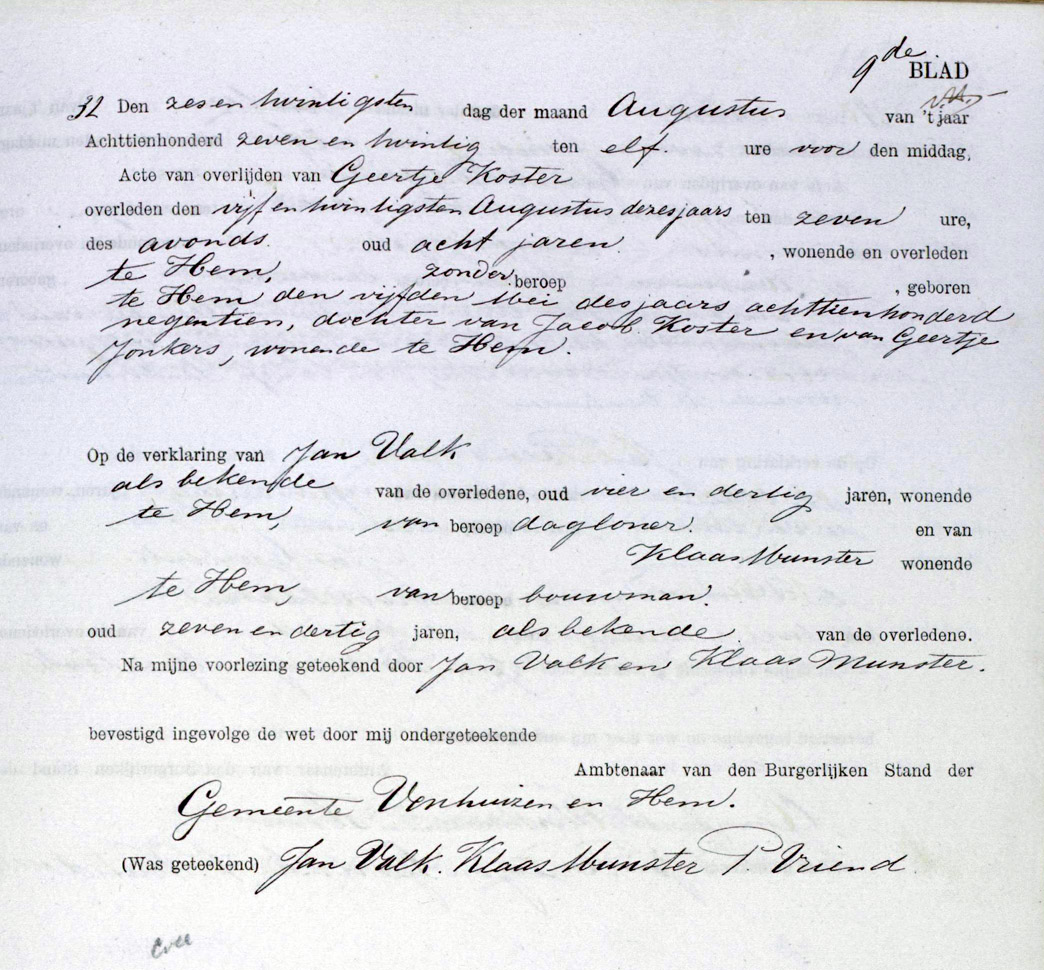 9de BLAD
32 Den zes en twintigsten dag der maand Augustus van 't jaar
Achttienhonderd zeven en twintig ten elf ure voor den middag,
Acte van overlijden van Geertje Koster
overleden den vijf en twintigsten Augustus dezes jaars ten zeven ure,
des avonds oud acht jaren , wonende en overleden
te Hem, zonder beroep , geboren
te Hem den vijfden Mei des jaars achttienhonderd
negentien, dochter van Jacob Koster en van Geertje
Jonkers, wonende te Hem.
Op de verklaring van Jan Valk
als bekende van de overledene, oud vier en dertig jaren, wonende
te Hem, van beroep dagloner. en van
Klaas Munster wonende
te Hem, van beroep bouwman.
oud zeven en dertig jaren, als bekende van de overledene.
Na mijne voorlezing geteekend door Jan Valk en Klaas Munster.
bevestigd ingevolge de wet door mij ondergeteekende
Ambtenaar van den Burgerlijken Stand der
Gemeente Venhuizen en Hem.
(Was geteekend) Jan Valk. Klaas Munster P Vriend